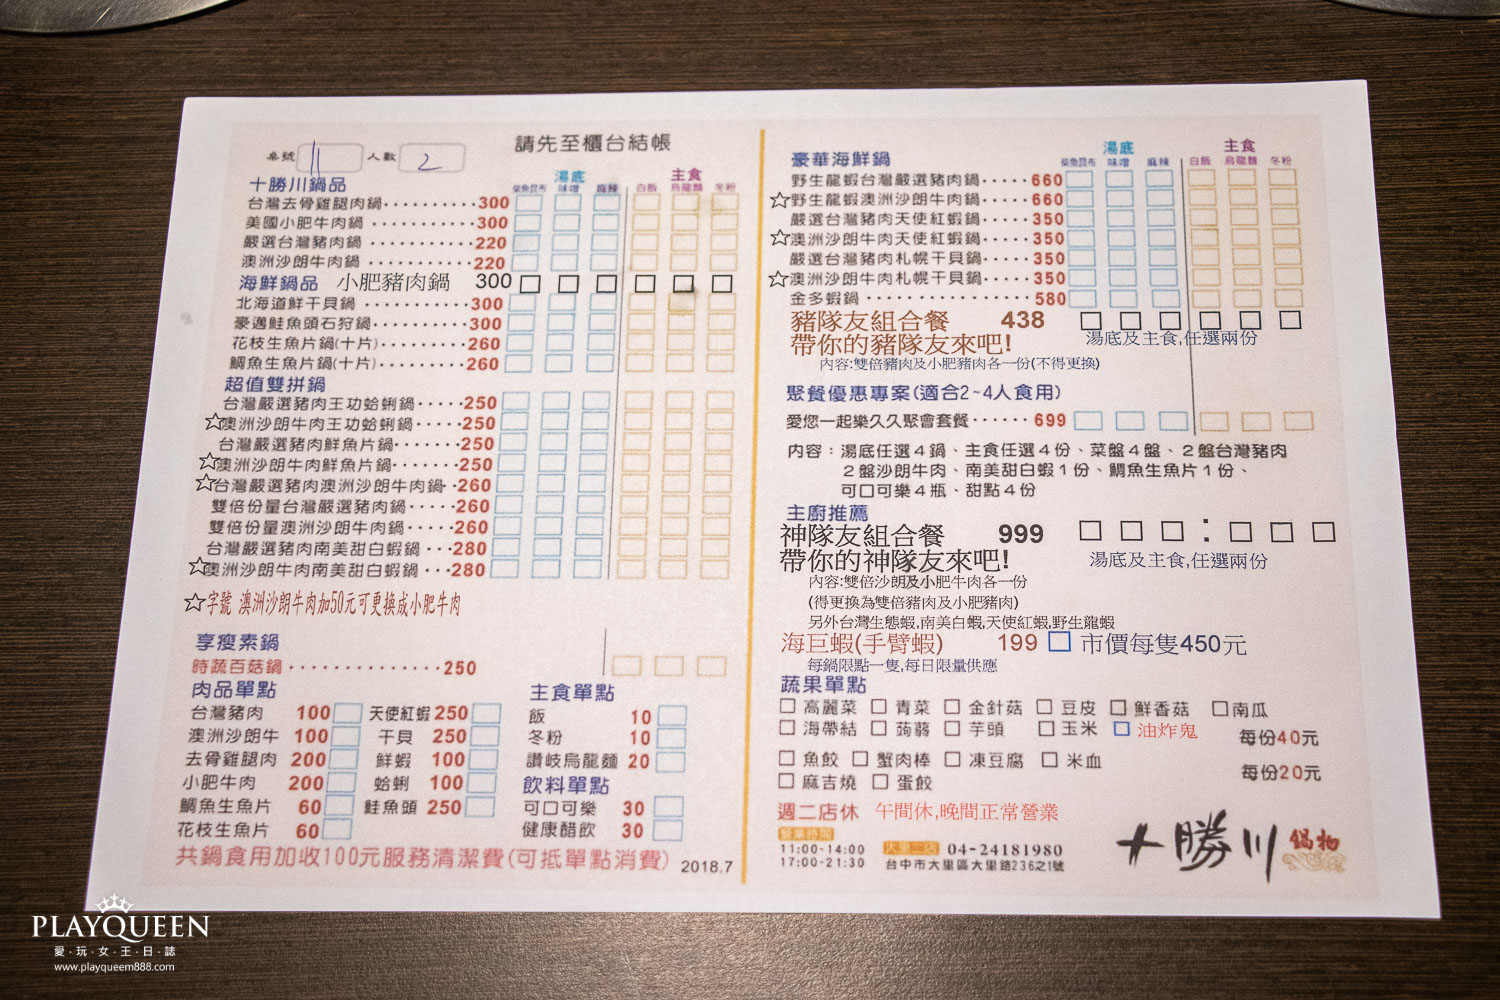 請先至櫃台結帳
桌號 11 人數 2
十勝川鍋品
湯底 主食
柴魚昆布 味噌 麻辣 白飯 烏龍麵 冬粉
台灣去骨雞腿肉鍋··········300
美國小肥牛肉鍋············300
嚴選台灣豬肉鍋············220
澳洲沙朗牛肉鍋············220
海鮮鍋品 小肥豬肉鍋 300□ □ □ □ □ □
北海道鮮干貝鍋············300
豪邁鮭魚頭石狩鍋···········300
花枝生魚片鍋(十片)··········260
鯛魚生魚片鍋(十片)··········260
超值雙拼鍋
台灣嚴選豬肉王功蛤蜊鍋·····250
☆澳洲沙朗牛肉王功蛤蜊鍋·····250
台灣嚴選豬肉鮮魚片鍋·······250
☆澳洲沙朗牛肉鮮魚片鍋·······250
☆台灣嚴選豬肉澳洲沙朗牛肉鍋··260
雙倍份量台灣嚴選豬肉鍋·····260
雙倍份量澳洲沙朗牛肉鍋·····260
台灣嚴選豬肉南美甜白蝦鍋···280
☆澳洲沙朗牛肉南美甜白蝦鍋···280
☆字號 澳洲沙朗牛肉加50元可更換成小肥牛肉
享瘦素鍋
時蔬百菇鍋···············250
肉品單點
台灣豬肉 100 天使紅蝦 250
澳洲沙朗牛 100 干貝 250
去骨雞腿肉 200 鮮蝦 100
小肥牛肉 200 蛤蜊 100
鯛魚生魚片 60 鮭魚頭 250
花枝生魚片 60
主食單點
飯 10
冬粉 10
讚岐烏龍麵 20
飲料單點
可口可樂 30
健康醋飲 30
共鍋食用加收100元服務清潔費(可抵單點消費) 2018.7
豪華海鮮鍋
湯底 主食
柴魚昆布 味噌 麻辣 白飯 烏龍麵 冬粉
野生龍蝦台灣嚴選豬肉鍋·····660
☆野生龍蝦澳洲沙朗牛肉鍋·····660
嚴選台灣豬肉天使紅蝦鍋·····350
☆澳洲沙朗牛肉天使紅蝦鍋·····350
嚴選台灣豬肉札幌干貝鍋·····350
☆澳洲沙朗牛肉札幌干貝鍋·····350
金多蝦鍋···············580
豬隊友組合餐 438 □ □ □ □ □ □
帶你的豬隊友來吧! 湯底及主食,任選兩份
內容:雙倍豬肉及小肥豬肉各一份(不得更換)
聚餐優惠專案(適合2~4人食用)
愛您一起樂久久聚會套餐······699
內容：湯底任選4鍋、主食任選4份、菜盤4盤、2盤台灣豬肉
2盤沙朗牛肉、南美甜白蝦1份、鯛魚生魚片1份、
可口可樂4瓶、甜點4份
主廚推薦
神隊友組合餐 999 □ □ □ : □ □ □
帶你的神隊友來吧! 湯底及主食,任選兩份
內容:雙倍沙朗及小肥牛肉各一份
(得更換為雙倍豬肉及小肥豬肉)
另外台灣生態蝦,南美白蝦,天使紅蝦,野生龍蝦
海巨蝦(手臂蝦) 199 □ 市價每隻450元
每鍋限點一隻,每日限量供應
蔬果單點
□ 高麗菜 □ 青菜 □ 金針菇 □ 豆皮 □ 鮮香菇 □南瓜
□ 海帶結 □ 蒟蒻 □ 芋頭 □ 玉米 □ 油炸鬼 每份40元
□ 魚餃 □ 蟹肉棒 □ 凍豆腐 □ 米血
□ 麻吉燒 □ 蛋餃 每份20元
週二店休 午間休,晚間正常營業
營業時間
11:00-14:00
17:00-21:30
大里二店 04-24181980
台中市大里區大里路236之1號
十勝川 鍋物
PLAYQUEEN
愛·玩·女·王·日·誌
www.playqueem888.com